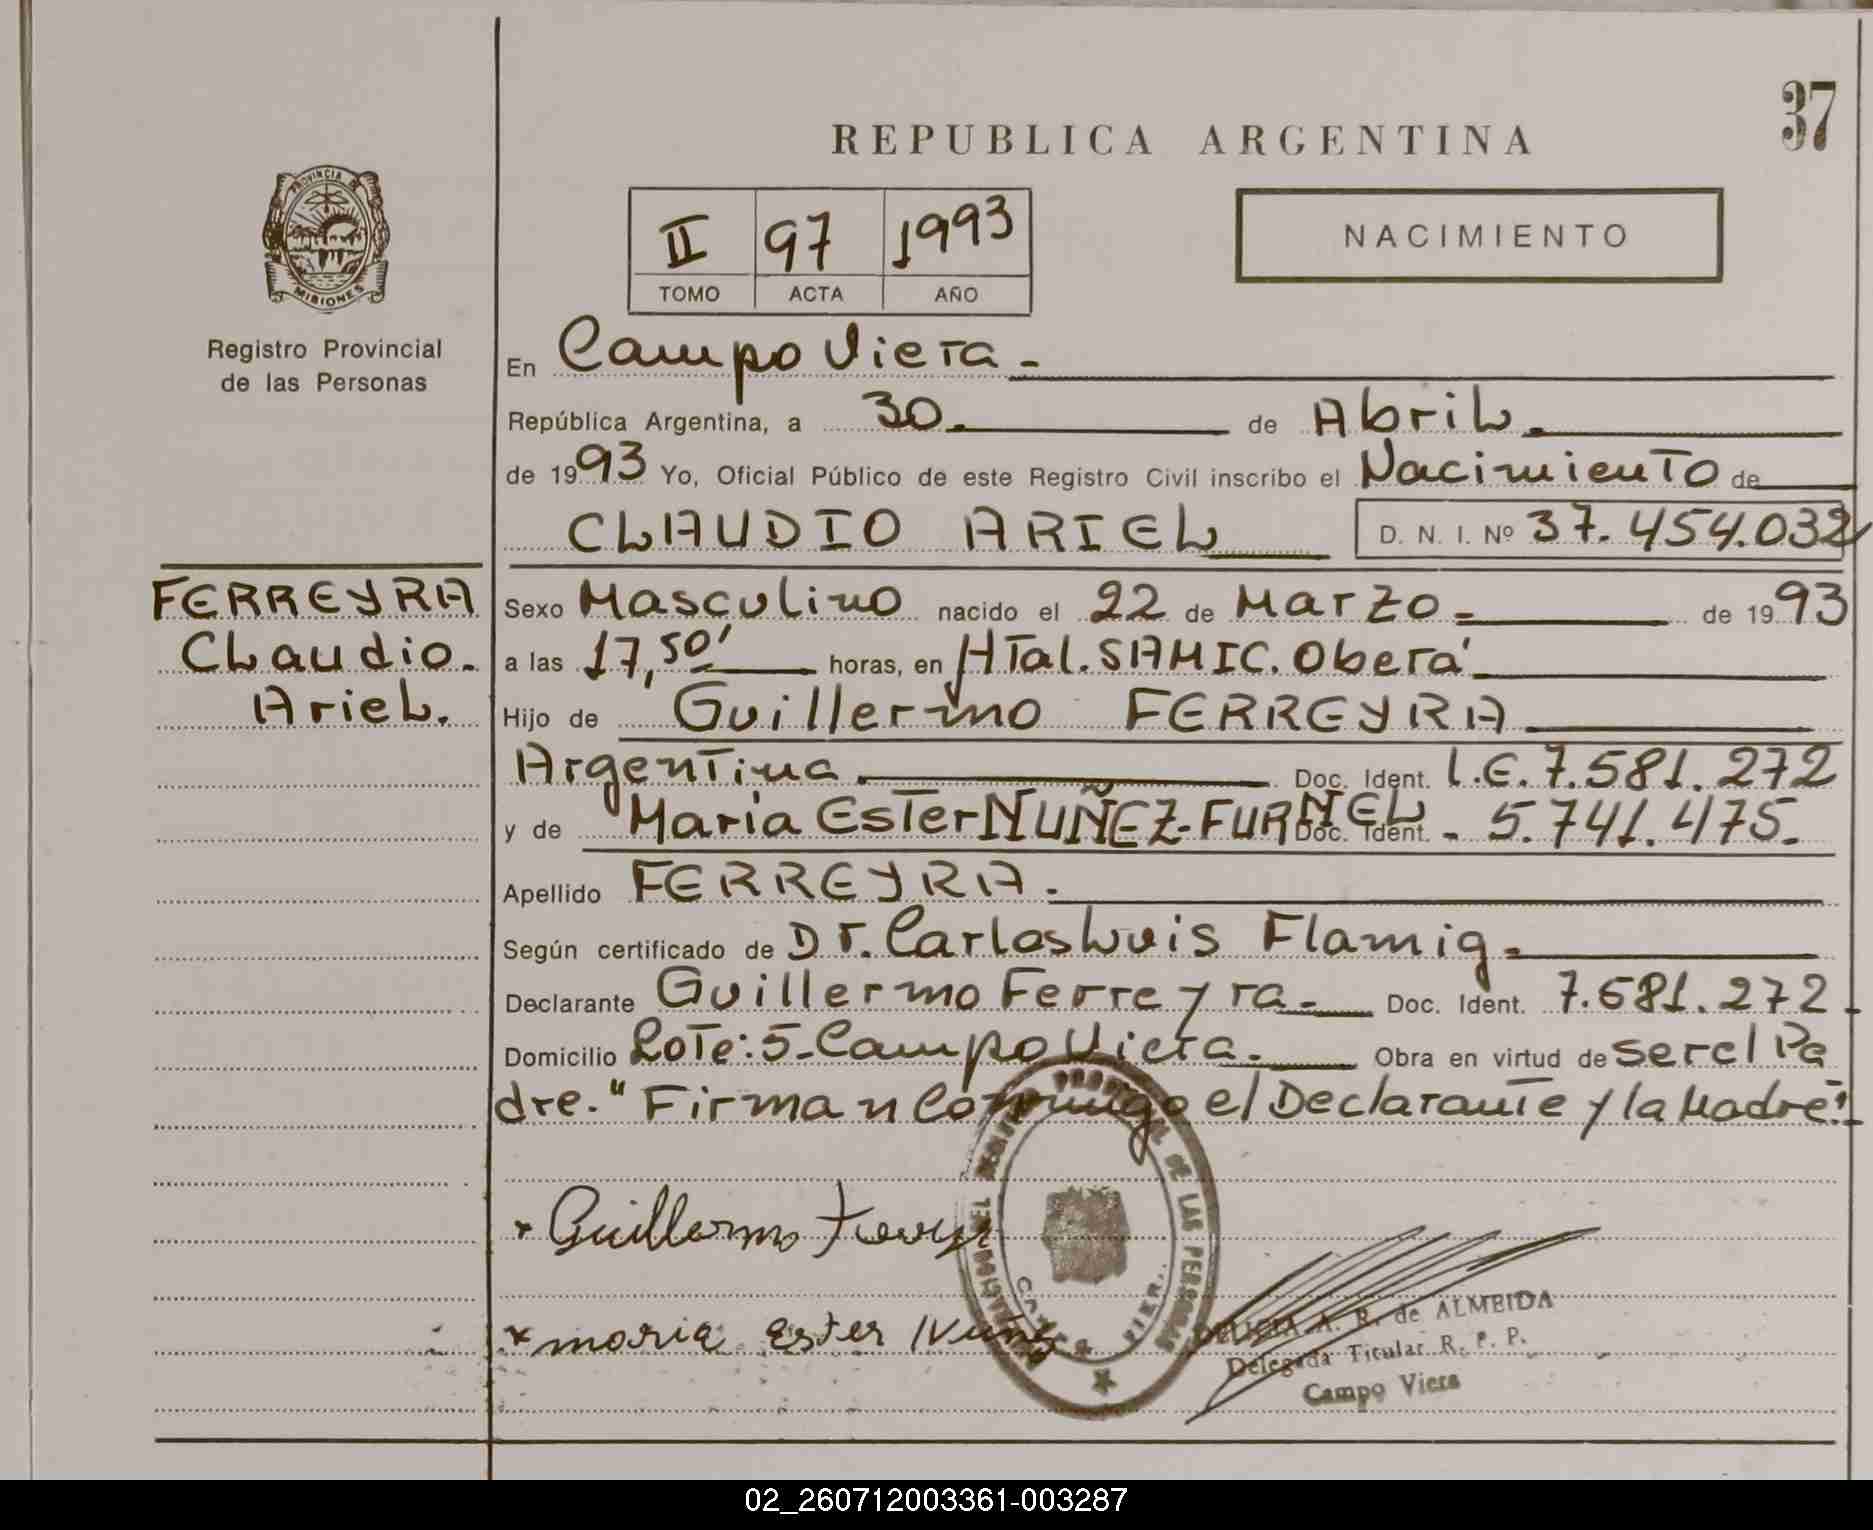 37
REPUBLICA ARGENTINA
PROVINCIA DE
MISIONES
Registro Provincial
de las Personas
II 97 1993
TOMO ACTA AÑO
NACIMIENTO
En Campo Viera -
República Argentina, a 30. de Abril.
de 1993 Yo, Oficial Público de este Registro Civil inscribo el Nacimiento de
CLAUDIO ARIEL D. N. I. Nº 37.454.032
FERREYRA
Claudio.
Ariel.
Sexo Masculino nacido el 22 de Marzo - de 1993
a las 17,50' horas, en HTal. SAMIC. Oberá
Hijo de Guillermo FERREYRA
Argentina. Doc. Ident. L.E. 7.581.272
y de Maria Ester NUÑEZ-FURNEL Doc. Ident. - 5.741.475.
Apellido FERREYRA.
Según certificado de Dr. Carlos Luis Flamig.
Declarante Guillermo Ferreyra. Doc. Ident. 7.581.272.
Domicilio Lote: 5-Campo Viera. Obra en virtud de ser el Pa
dre. "Firman Conmigo el Declarante y la Madre"
Guillermo
x maria Ester Nuñez
REGISTRO PROVINCIAL DE LAS PERSONAS
DELICIA A. R. de ALMEIDA
Delegada Titular R. P. P.
Campo Viera
02_260712003361-003287